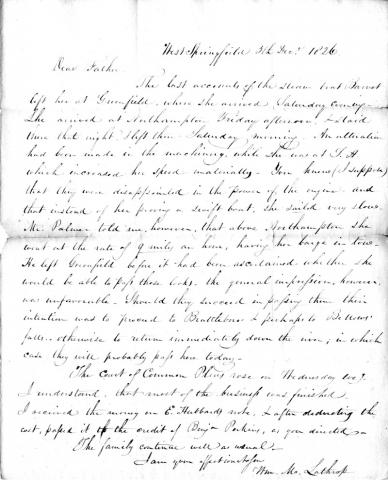 West Springfield 5th Decr 1826
Dear Father
The last accounts of the steam boat Barnet
left her at Greenfield, where she arrived Saturday evening.
She arrived at Northampton Friday afternoon, & staid
there that night & left there Saturday morning. An alteration
had been made in the machinery, while she was at S. H
which increased her speed materially. You know (I suppose)
that they were disappointed in the power of the engine and
that instead of her proving a swift boat, she sailed very slow.
Mr. Palmer told me, however, that above Northampton she
went at the rate of 5 mils an hour, having her barge in tow.
He left Greenfield before it had been ascertained whether she
would be able to pass those locks. the general impression, however,
was unfavorable. Should they succeed in passing them their
intention was to proceed to Brattleboro & perhaps to Bellows
falls — otherwise to return immediately down the river; in which
case they will probably pass here today.
The Court of Common Pleas rose on Wednesday
I understand, that most of the business was finished.
I received the money on E. Hubbards note, & after deducting the
cost, passed it to the credit of Benjn Perkins, as you directed
The family continue well as usual.
I am your affectionate son
Wm. Mc. Lathrop